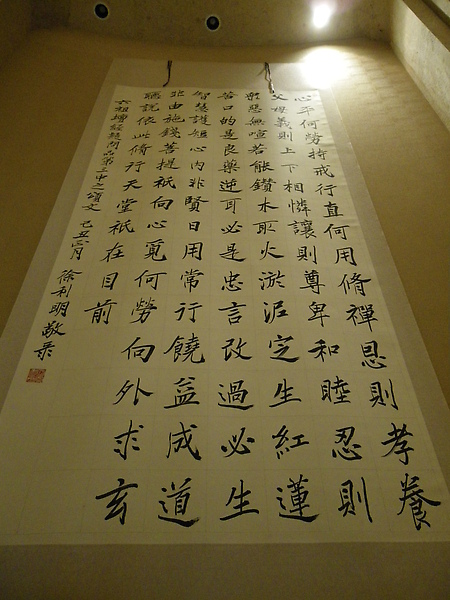 心平何勞持戒行直何用脩禪恩則孝養
父母義則上下相憐讓則尊卑和睦忍則
眾惡無喧若能鑽木取火淤泥定生紅蓮
苦口的是良藥逆耳必是忠言改過必生
智慧護短心內非賢日用常行饒益成道
非由施錢菩提祇向心覓何勞向外求玄
聽説依此脩行天堂祇在目前
六祖壇經疑問品第三中之頌文 己丑三月 徐利明敬录